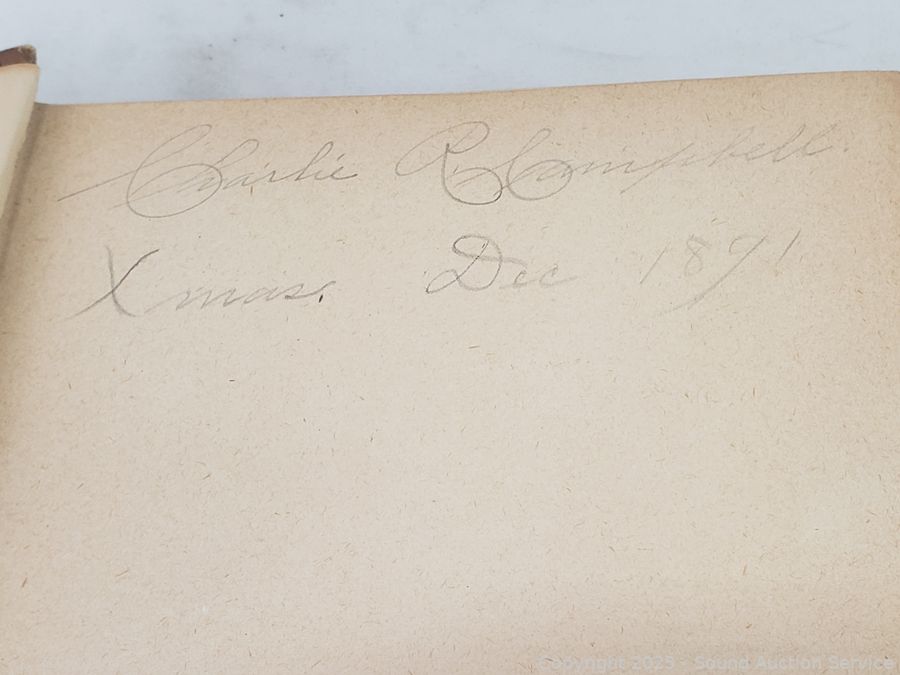 Charlie R Campbell.
Xmas. Dec 1891
Copyright 2023 - Sound Auction Service